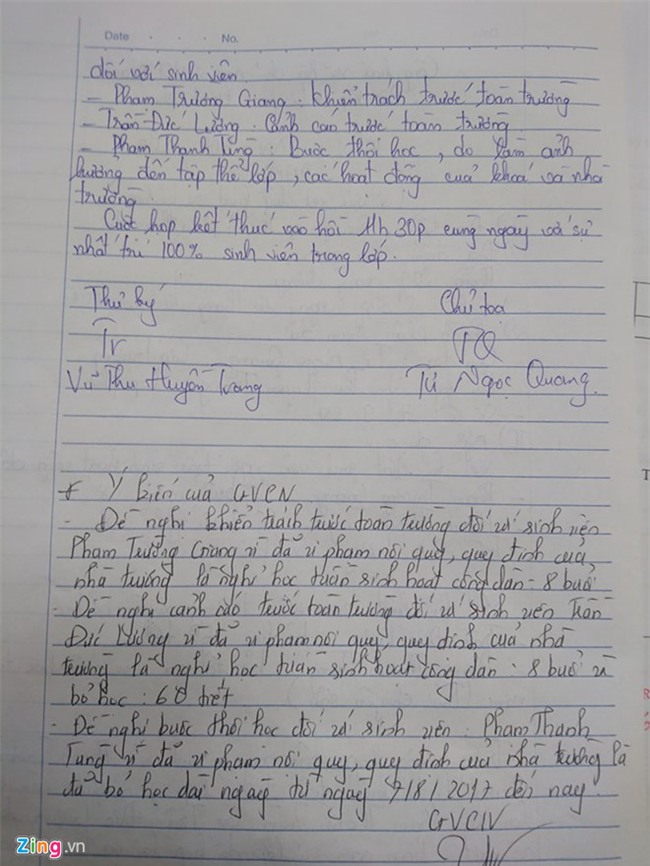 Date . . . No.
đối với sinh viên
- Phạm Trường Giang : khiển trách trước toàn trường
- Trần Đức Lương : Cảnh cáo trước toàn trường
- Phạm Thanh Tùng : Buộc thôi học, do làm ảnh
hưởng đến tập thể lớp, các hoạt động của khoa và nhà
trường
Cuộc họp kết thúc vào hồi 11h30p cùng ngày với sự
nhất trí 100% sinh viên trong lớp.
Thư ký Chủ tọa
Tr TQ
Vũ Thu Huyền Trang Từ Ngọc Quang.
* Ý kiến của GVCN
- Đề nghị khiển trách trước toàn trường đối với sinh viên
Phạm Trường Giang vì đã vi phạm nội quy, quy định của
nhà trường là nghỉ học tuần sinh hoạt công dân : 8 buổi
- Đề nghị cảnh cáo trước toàn trường đối với sinh viên Trần
Đức Lương vì đã vi phạm nội quy, quy định của nhà
trường là nghỉ học tuần sinh hoạt công dân : 8 buổi và
bỏ học : 68 tiết
- Đề nghị buộc thôi học đối với sinh viên : Phạm Thanh
Tùng vì đã vi phạm nội quy, quy định của nhà trường là
đã bỏ học dài ngày từ ngày 7/8/2017 đến nay.
GVCN
Zing.vn